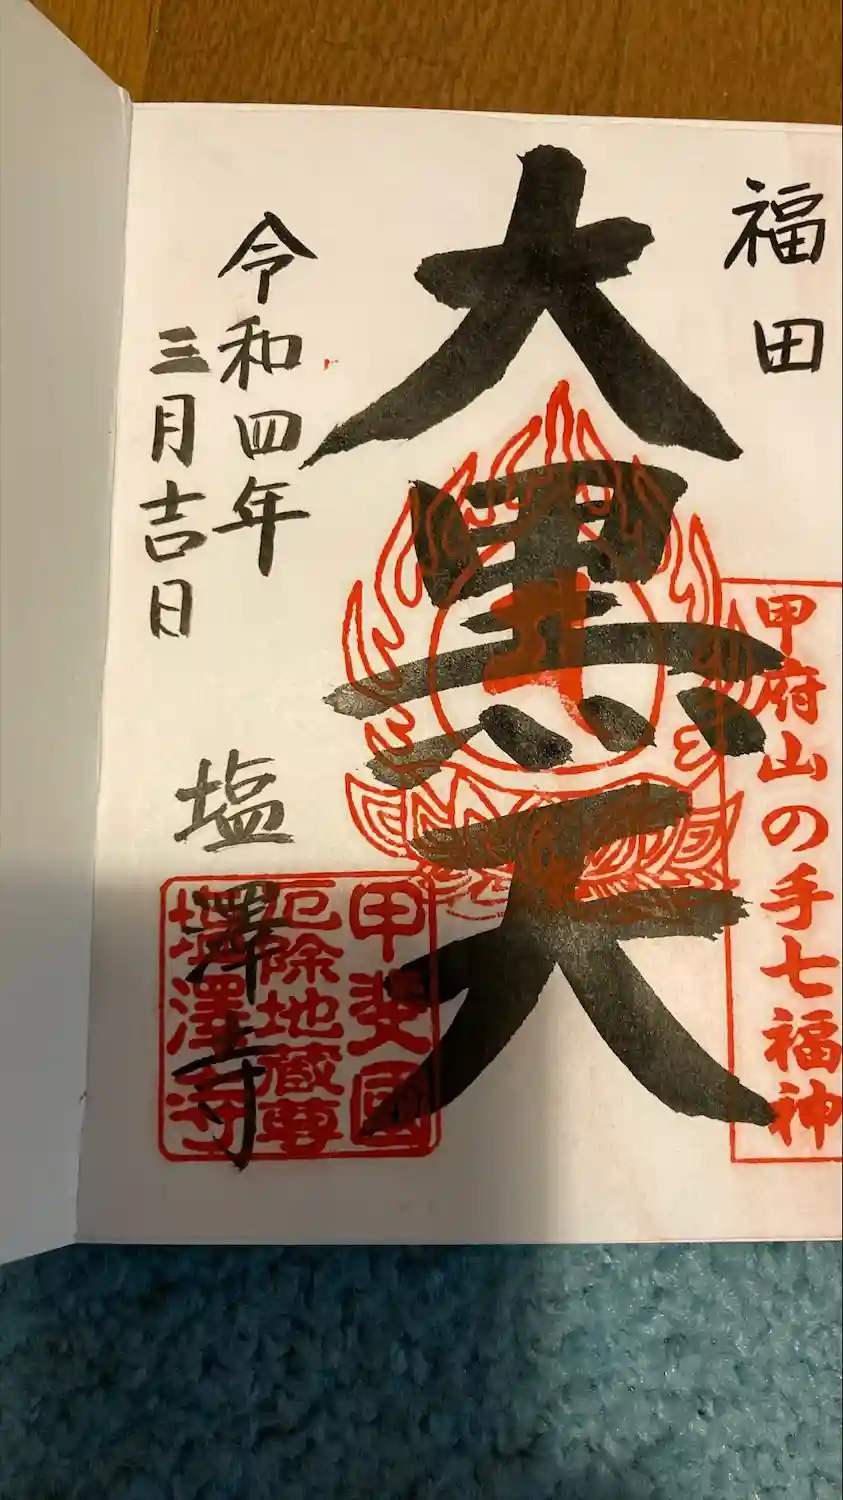 福田
甲府山の手七福神
大黒天
令和四年
三月吉日
塩澤寺
甲斐國
厄除地蔵尊
塩澤寺